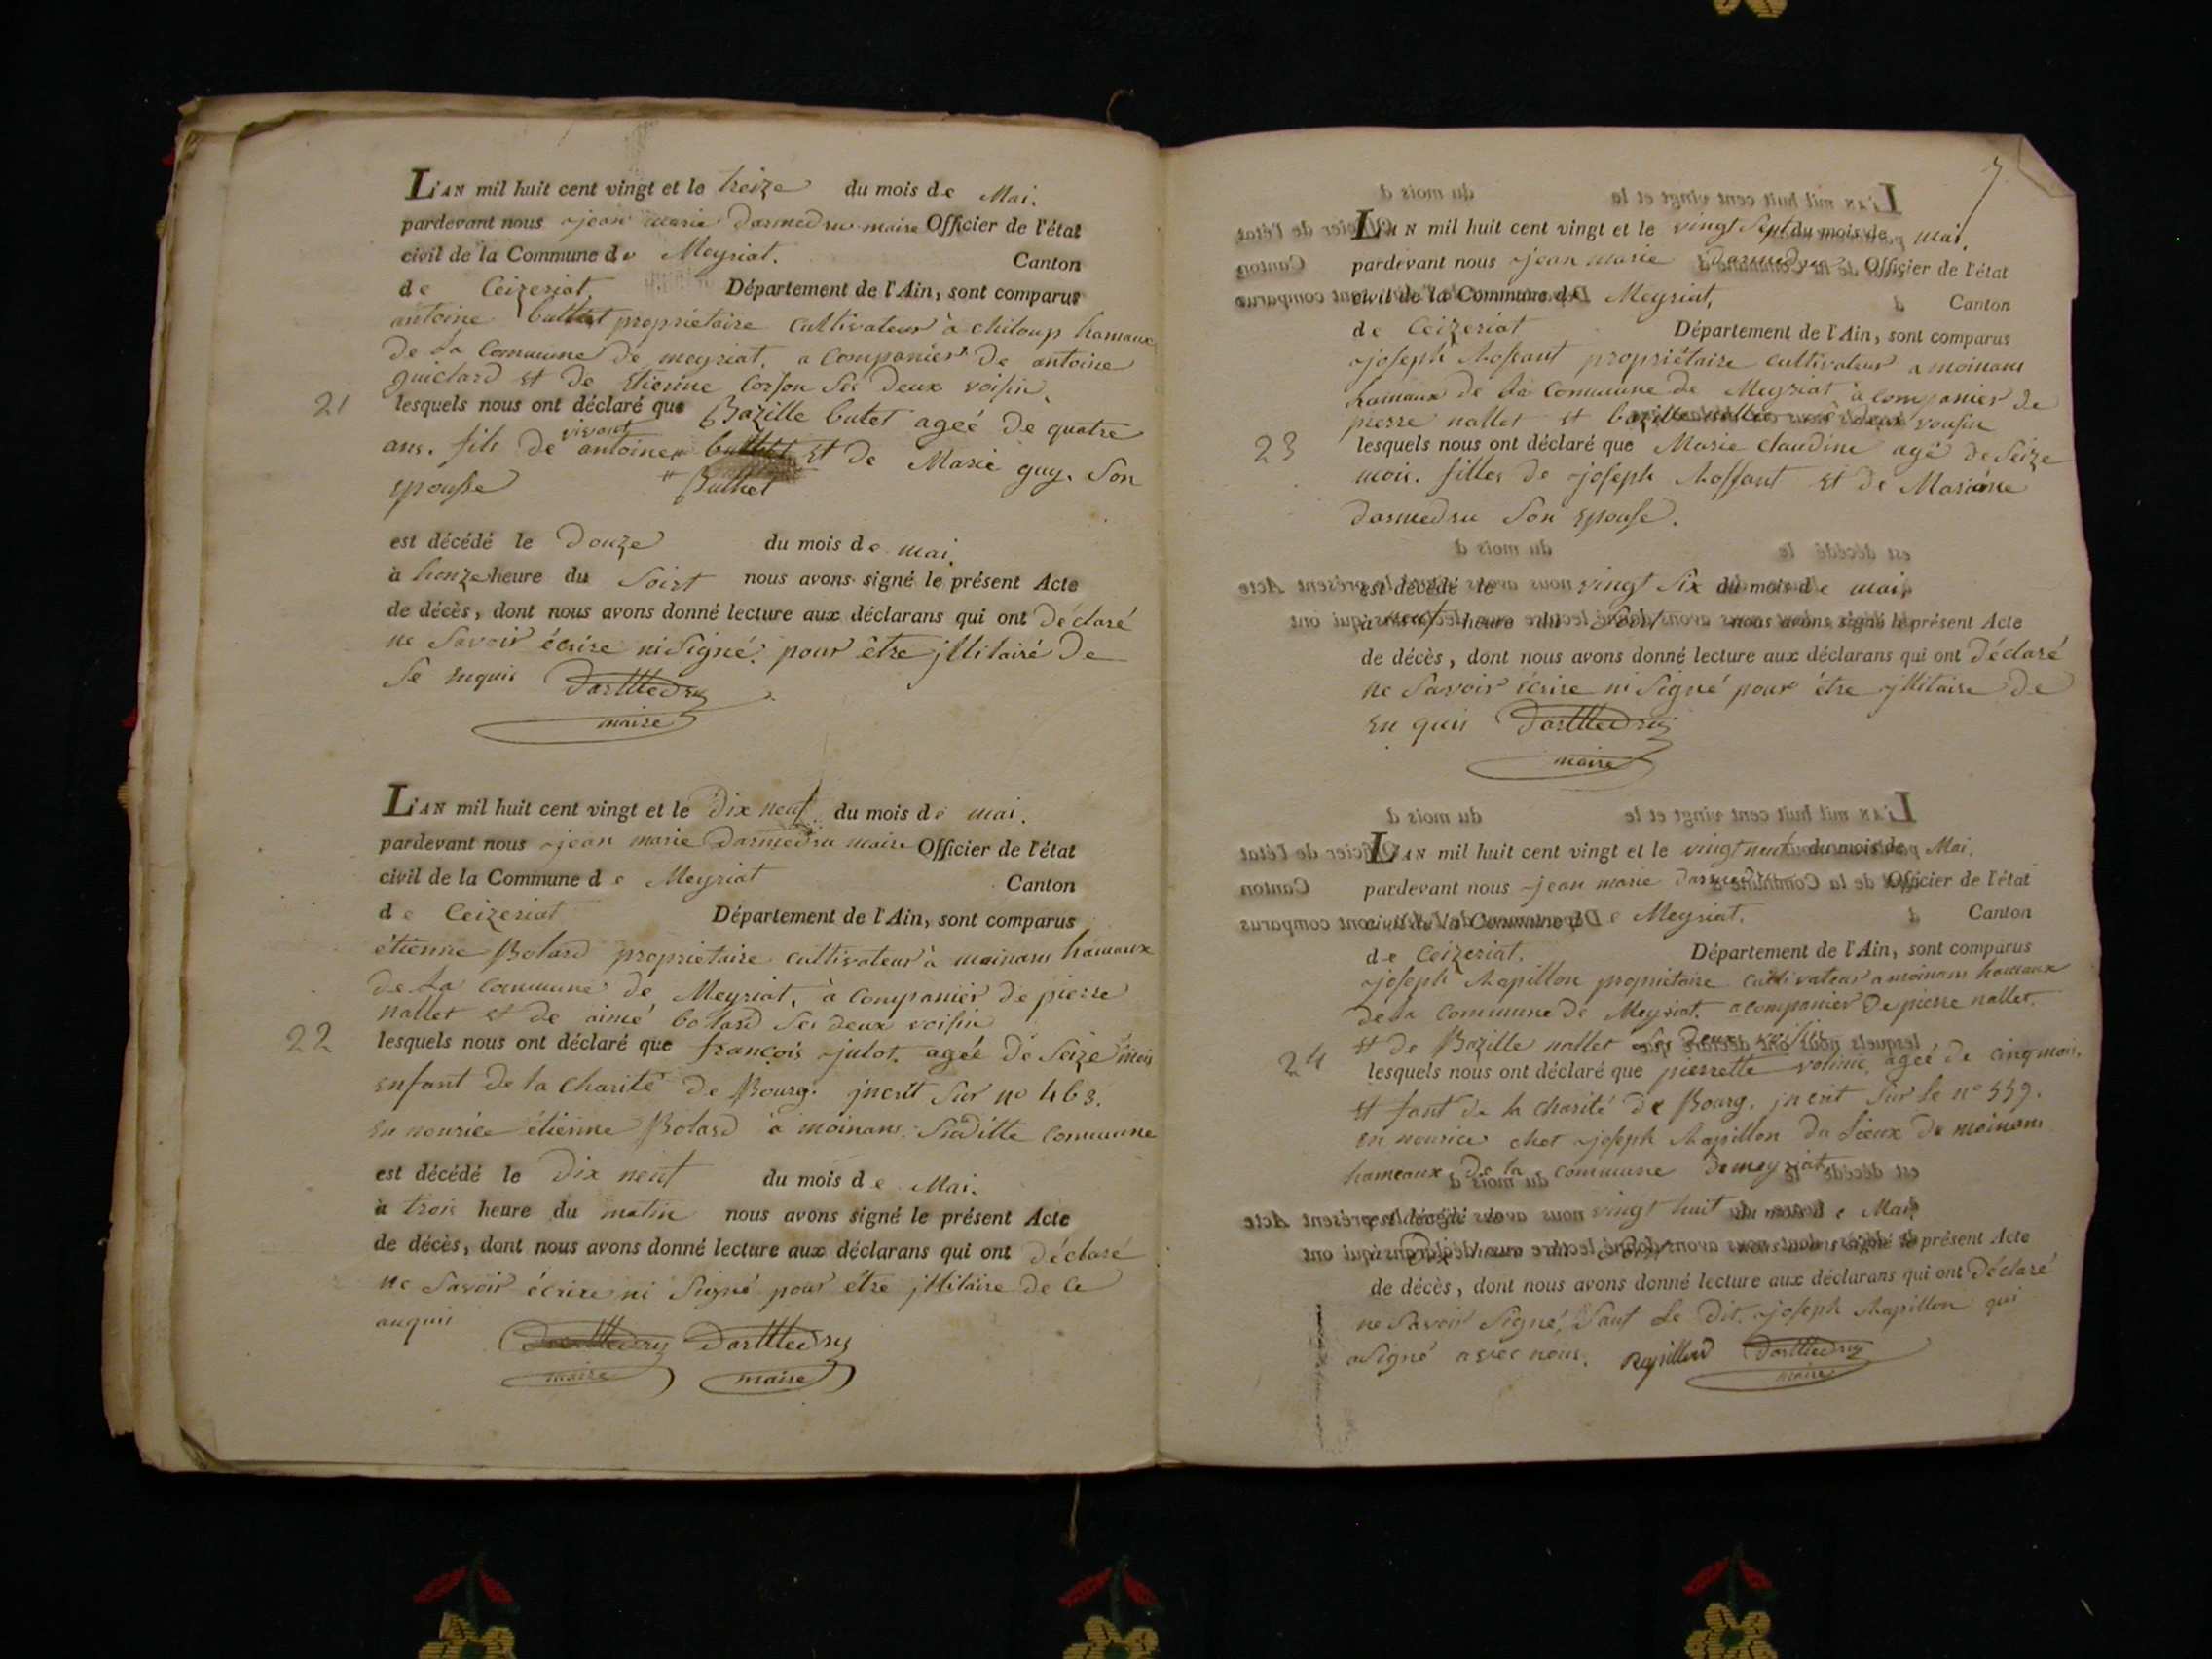 L'AN mil huit cent vingt et le treize du mois de Mai.
pardevant nous jean marie Darmedru maire Officier de l'état
civil de la Commune de Meyriat. Canton
de Ceizeriat Département de l'Ain, sont comparus
antoine buthet propriétaire Cultivateur à chiloup hamaux
de La Commune de meyriat, a Companiér de antoine
guichard et de Etienne Corson Ses deux voisin.
21 lesquels nous ont déclaré que Bazille butet ageé de quatre
ans. fils de vivant antoine et de Marie guy. Son
epousse Buthet
est décédé le Douze du mois de mai
à honze heure du Soirt nous avons signé le présent Acte
de décès, dont nous avons donné lecture aux déclarans qui ont déclaré
ne Savoir écrire ni Signé. pour être jllitairé de
Se enquis Darmedru
maire
L'AN mil huit cent vingt et le Dix neuf du mois de mai.
pardevant nous jean marie Darmedru maire Officier de l'état
civil de la Commune de Meyriat Canton
de Ceizeriat Département de l'Ain, sont comparus
étienne Bolard propriétaire cultivateur à moinans hamaux
de La commune de Meyriat, à Companiér de pierre
nallet et de aimé bolard Ses deux voisin
22 lesquels nous ont déclaré que françois julot. ageé de Seize mois
enfant de la charité de Bourg. jncrit Sur no 463.
en nourice étienne Bolard à moinans. Suditte Commune
est décédé le Dix neuf du mois de Mai.
à trois heure du matin nous avons signé le présent Acte
de décès, dont nous avons donné lecture aux déclarans qui ont déclaré
ne Savoir écrire ni Signé pour être jllitaire de Ce
anquis
Darmedru Darmedru
maire maire
7
L'AN mil huit cent vingt et le vingt Sept du mois de mai.
pardevant nous jean marie Darmedru Officier de l'état
civil de la Commune de Meyriat, Canton
de Ceizeriat Département de l'Ain, sont comparus
joseph propriétaire cultivateur a moinans
hamaux de La Commune de Meyriat à companier de
pierre nallet et bazille deux voisin
23 lesquels nous ont déclaré que Marie claudine agé de Seize
mois. filles de joseph et de Mariane
darmedru Son epouse.
est décédé le vingt Six du mois de mai,
à neuf heure du Soirt nous avons signé le présent Acte
de décès, dont nous avons donné lecture aux déclarans qui ont déclaré
ne Savoir écrire ni Signé pour être jllitaire de
en quis Darmedru
maire
L'AN mil huit cent vingt et le vingt neuf du mois de Mai.
pardevant nous jean marie Darmedru Officier de l'état
civil de la Commune de Meyriat. Canton
de Ceizeriat. Département de l'Ain, sont comparus
joseph Rapillon propriétaire cultivateur a moinans hamaux
de La Commune de Meyriat. a companier de pierre nallet.
et de Bazille nallet Ses deux voisin
24 lesquels nous ont déclaré que pierrette ageé de cinq mois.
et fant de la charité de Bourg. jncrit Sur le n° 559.
en nourice chet joseph Rapillon du Lieux de moinans
hameaux de la commune de meyriat
est décédé le vingt huit du mois de Mai
heure du nous avons signé le présent Acte
de décès, dont nous avons donné lecture aux déclarans qui ont déclaré
ne Savoir Signé, Sauf Le Dit. joseph Rapillon qui
a Signé avec nous. Rapillon Darmedru
maire